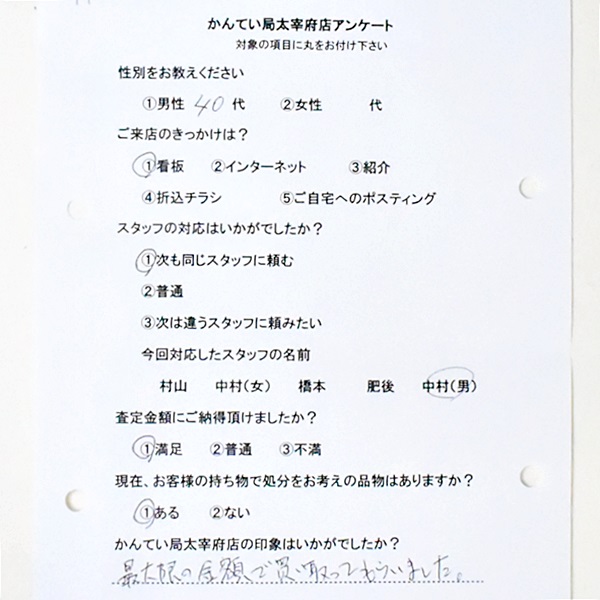 かんてい局太宰府店アンケート
対象の項目に丸をお付け下さい
性別をお教えください
①男性 40 代 ②女性 代
ご来店のきっかけは？
①看板 ②インターネット ③紹介
④折込チラシ ⑤ご自宅へのポスティング
スタッフの対応はいかがでしたか？
①次も同じスタッフに頼む
②普通
③次は違うスタッフに頼みたい
今回対応したスタッフの名前
村山 中村（女） 橋本 肥後 中村（男）
査定金額にご納得頂けましたか？
①満足 ②普通 ③不満
現在、お客様の持ち物で処分をお考えの品物はありますか？
①ある ②ない
かんてい局太宰府店の印象はいかがでしたか？
最大限の金額で買い取ってもらいました。